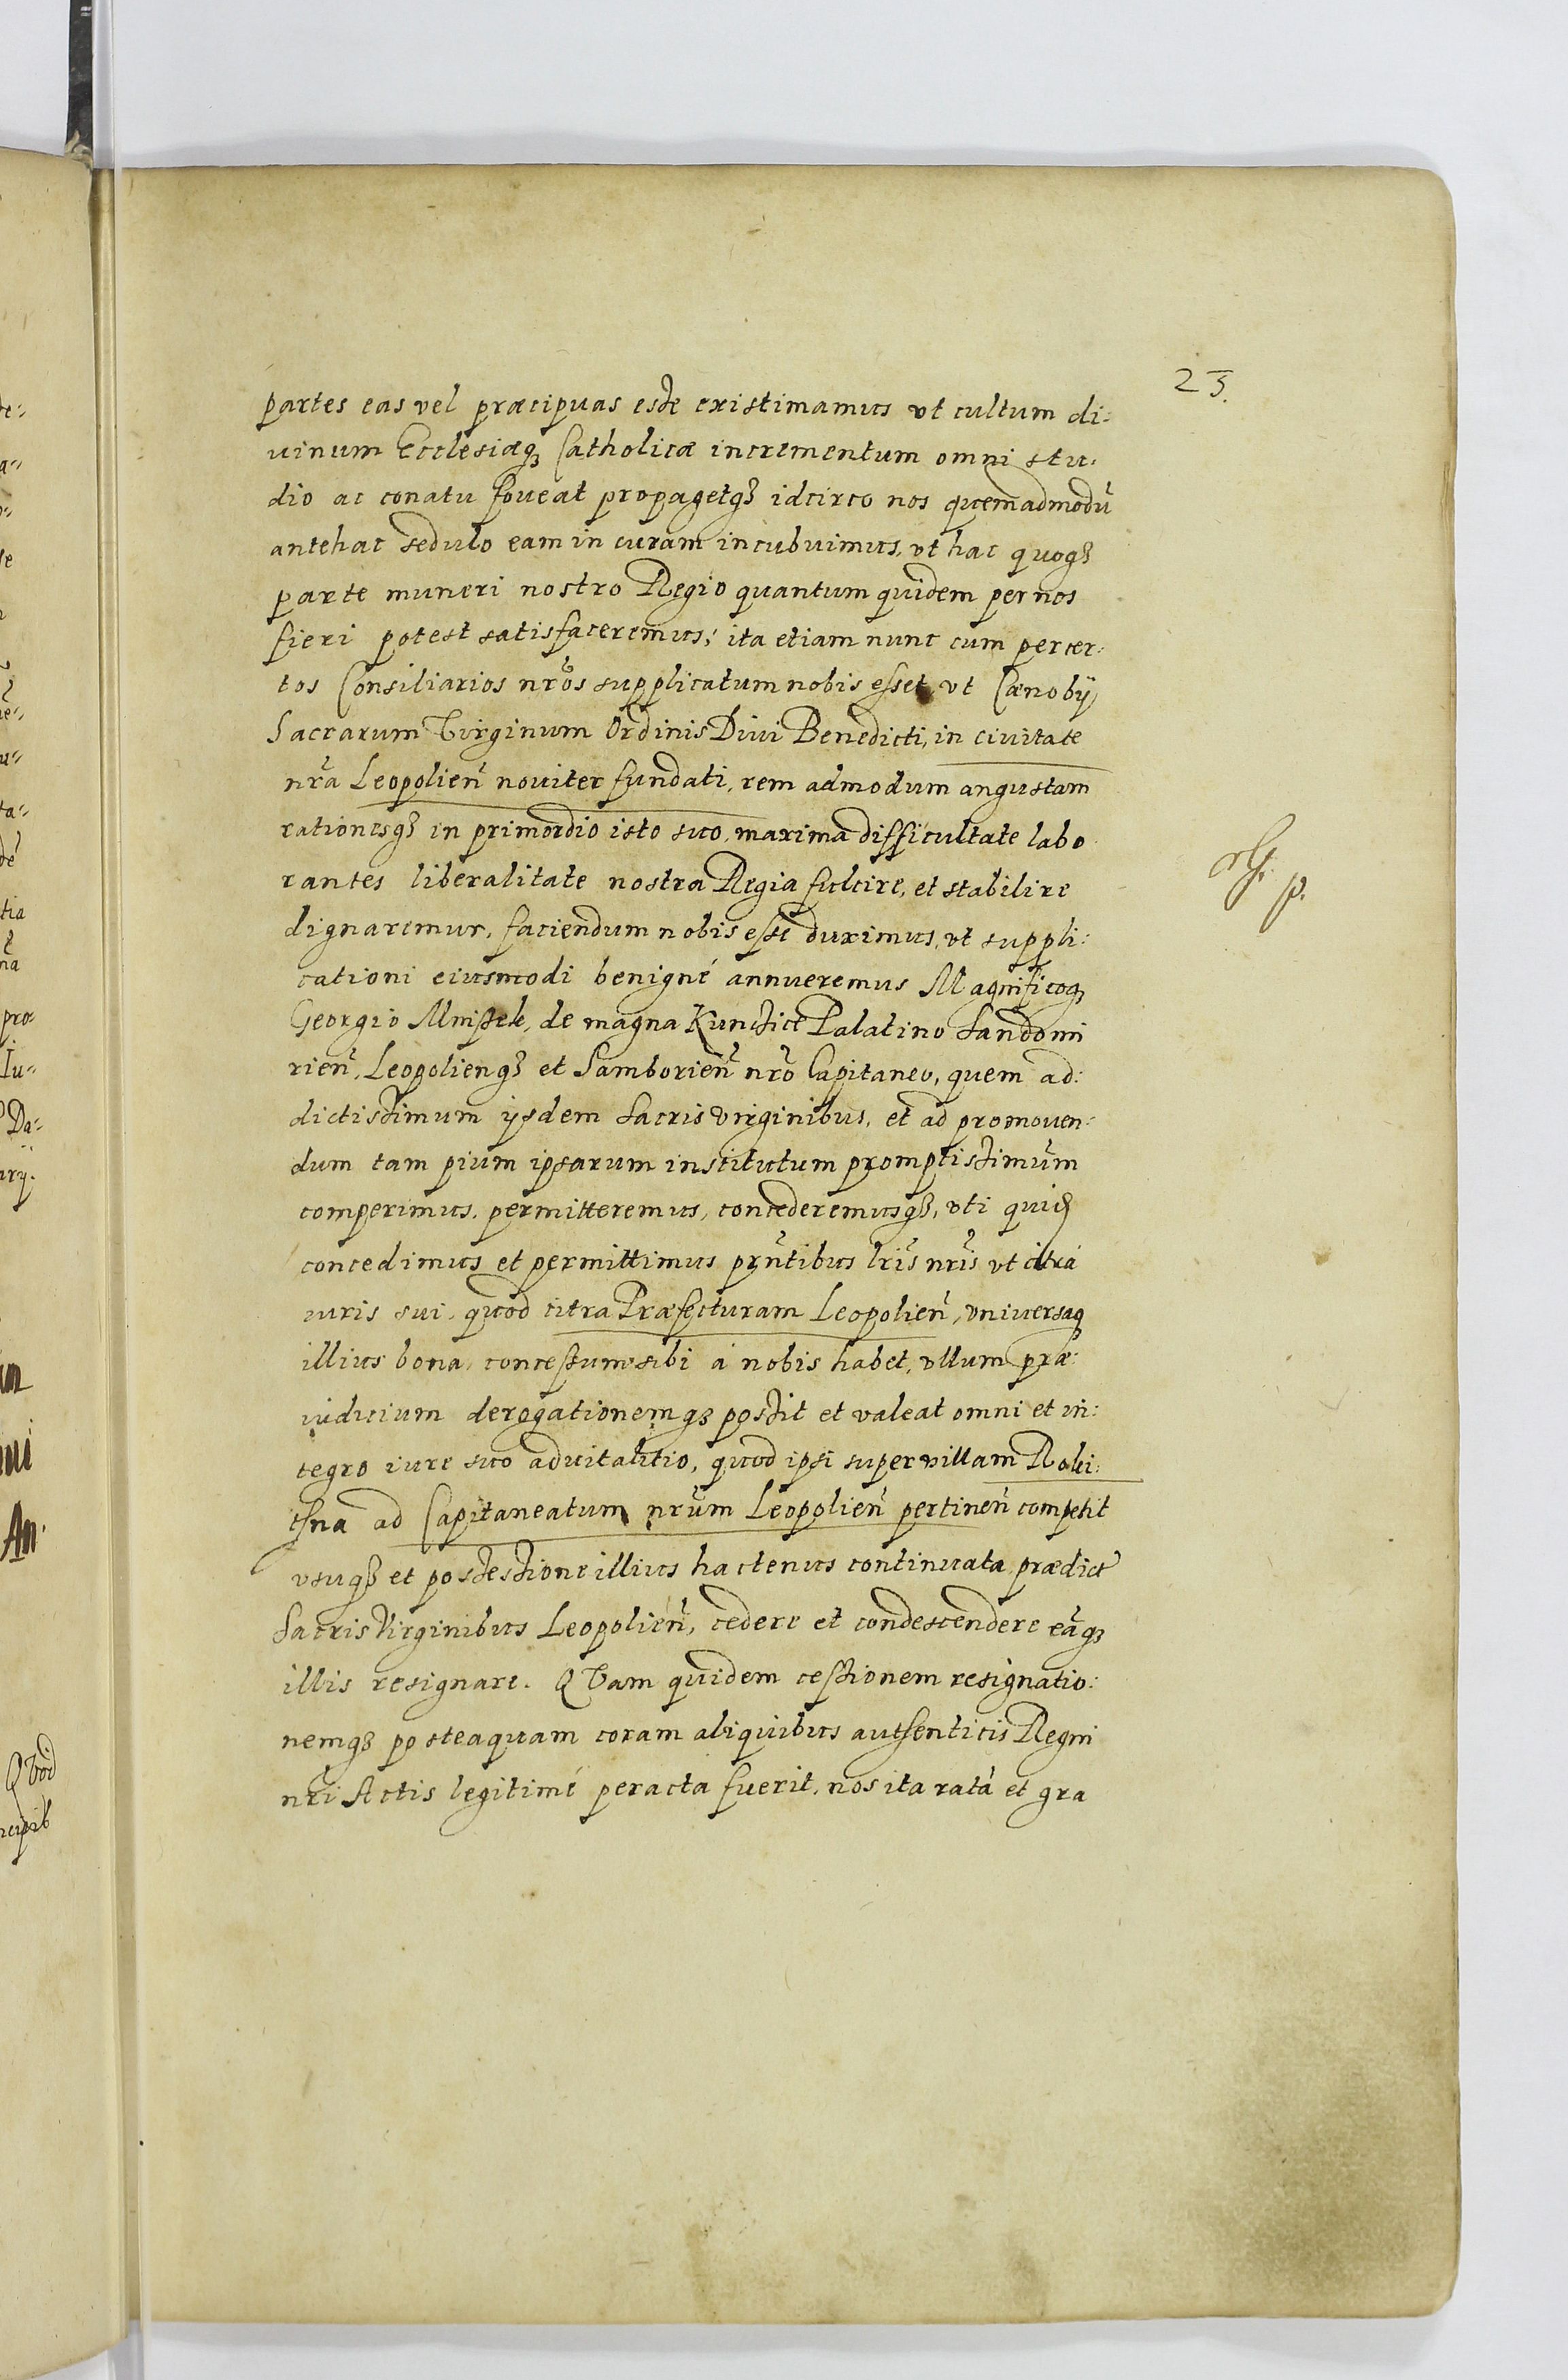 23.
partes eas vel præcipuas esse existimamus vt cultum di:
uinum Ecclesiæq3 Catholicæ incrementum omni stu:
dio ac conatu foueat propagetq3 idcirco nos quemadmodū
antehac sedulo eam in curam incubuimus, vt hac quoq3
parte muneri nostro Regio quantum quidem per nos
fieri potest satisfaceremus; ita etiam nunc cum per cer:
tos Consiliarios nr̃os supplicatum nobis esset vt Cænobÿ
Sacrarum Virginum Ordinis Diui Benedicti, in ciuitate
nr̃a Leopolien̄ nouiter fundati, rem admodum angustam
rationesq3 in primordio isto suo, maxima difficultate labo
rantes liberalitate nostra Regia fulcire, et stabilire
dignaremur, faciendum nobis esse duximus, vt suppli:
cationi eiusmodi benigné annueremus Magnificoq3
Georgio Mnissek, de magna Kunczice Palatino Sandomi
rien̄, Leopolienq3 et Samborien̄ nr̃o Capitaneo, quem ad:
dictissimum ÿsdem Sacris virginibus, et ad promouen:
dum tam pium ipsarum institutum promptissimum
comperimus, permitteremus, concederemusq3, vti quid
concedimus et permittimus prn̄tibus lr̃is nr̃is vt citrá
iuris sui, quod citra Præfecturam Leopolien̄, vniuersaq3
illius bona, concessum sibi á nobis habet, vllum præ:
iudicium derogationemq3 possit et valeat omni et in:
tegro iure suo aduitalitio, quod ipsi super villam
ad Capitaneatum nr̃um Leopolien̄ pertinen̄ competit
vsuq3 et possessione illius hactenus continuata prædict
Sacris Virginibus Leopolien̄, cedere et condescendere eāq3
illis resignare. QVam quidem cessionem resignatio:
nemq3 posteaquam coram aliquibus authenticis Regni
nr̃i Actis legitimé peracta fuerit, nos ita ratá et gra